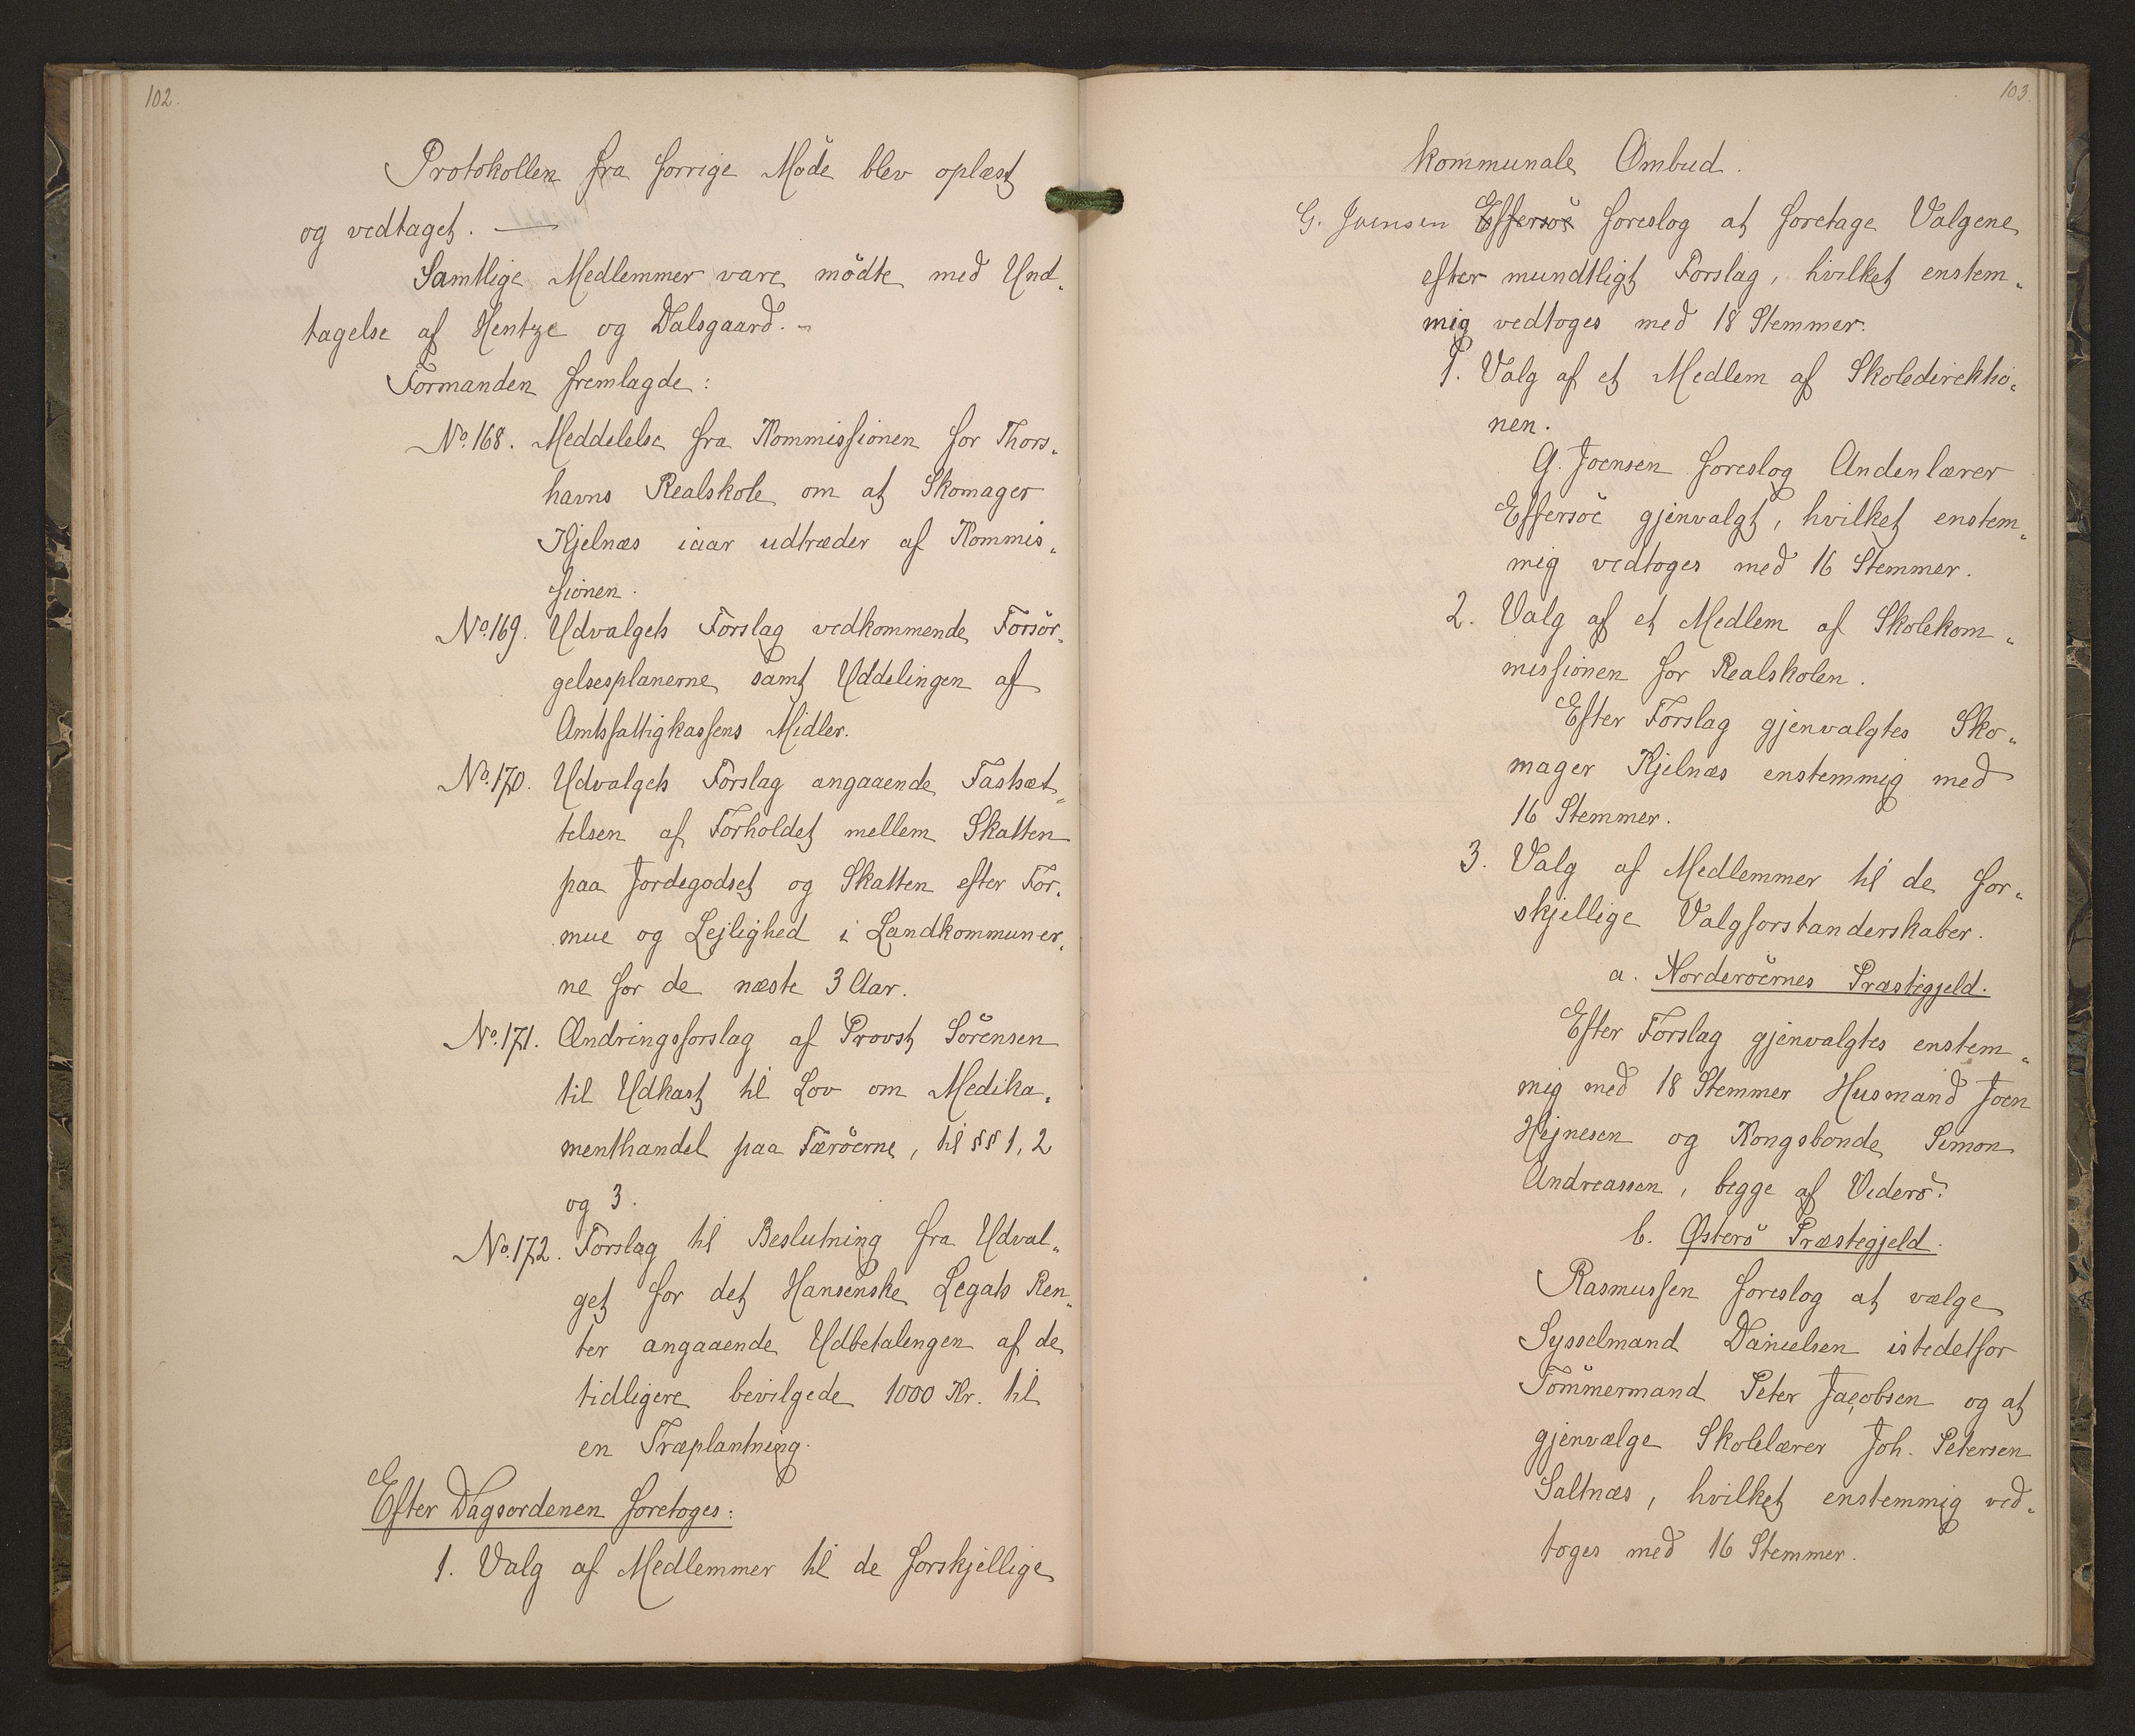 102.
Protokollen fra forrige Möde blev oplæst
og vedtaget. —
Samtlige Medlemmer vare mödte med Und-
tagelse af Hentze og Dalsgaard. -
Formanden fremlagde:
No. 168. Meddelelse fra Kommissionen for Thors-
havns Realskole om at Skomager
Kjelnæs iaar udtræder af Kommis-
sionen.
No. 169. Udvalgets Forslag vedkommende Forsör-
gelsesplanerne samt Uddelingen af
Amtsfattigkassens Midler.
No. 170. Udvalgets Forslag angaaende Fastsæt-
telsen af Forholdet mellem Skatten
paa Jordegodset og Skatten efter For-
mue og Lejlighed i Landkommuner-
ne for de næste 3 Aar.
No. 171. Ændringsforslag af Provst Sörensen
til Udkast til Lov om Medika-
menthandel paa Færöerne, til §§ 1, 2
og 3.
No. 172. Forslag til Beslutning fra Udval-
get for det Hansenske Legats Ren-
ter angaaende Udbetalingen af de
tidligere bevilgede 1000 Kr. til
en Træplantning.
Efter Dagsordenen foretoges:
1. Valg af Medlemmer til de forskjellige
103.
kommunale Ombud.
G. Joensen Effersöe foreslog at foretage Valgene
efter mundtligt Forslag, hvilket enstem-
mig vedtoges med 18 Stemmer.
1. Valg af et Medlem af Skoledirektio-
nen.
G. Joensen foreslog Andenlærer
Effersöe gjenvalgt, hvilket enstem-
mig vedtoges med 16 Stemmer.
2. Valg af et Medlem af Skolekom-
missionen for Realskolen.
Efter Forslag gjenvalgtes Sko-
mager Kjelnæs enstemmig med
16 Stemmer.
3. Valg af Medlemmer til de for-
skjellige Valgforstanderskaber.
a. Norderöernes Præstegjeld.
Efter Forslag gjenvalgtes enstem-
mig med 18 Stemmer Husmand Joen
Hejnesen og Kongsbonde Simon
Andreassen, begge af Viderö.
b. Østerö Præstegjeld.
Rasmussen foreslog at vælge
Sysselmand Danielsen istedetfor
Tömmermand Peter Jacobsen og at
gjenvælge Skolelærer Joh. Petersen
Saltnæs, hvilket enstemmig ved-
toges med 16 Stemmer.